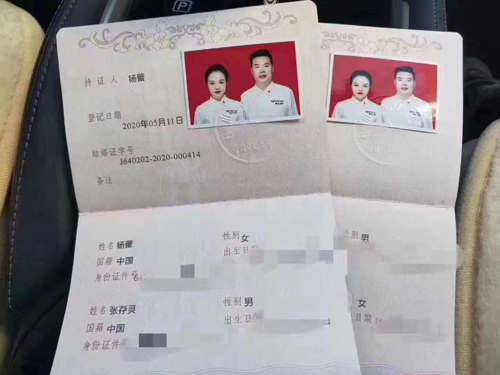 持证人 杨蕾
登记日期
2020年05月11日
结婚证字号
J640202-2020-000414
备注
姓名 杨蕾 性别 女
国籍 中国 出生日期
身份证件号
姓名 张存灵 性别 男
国籍 中国 出生日期
身份证件
性别 男
女